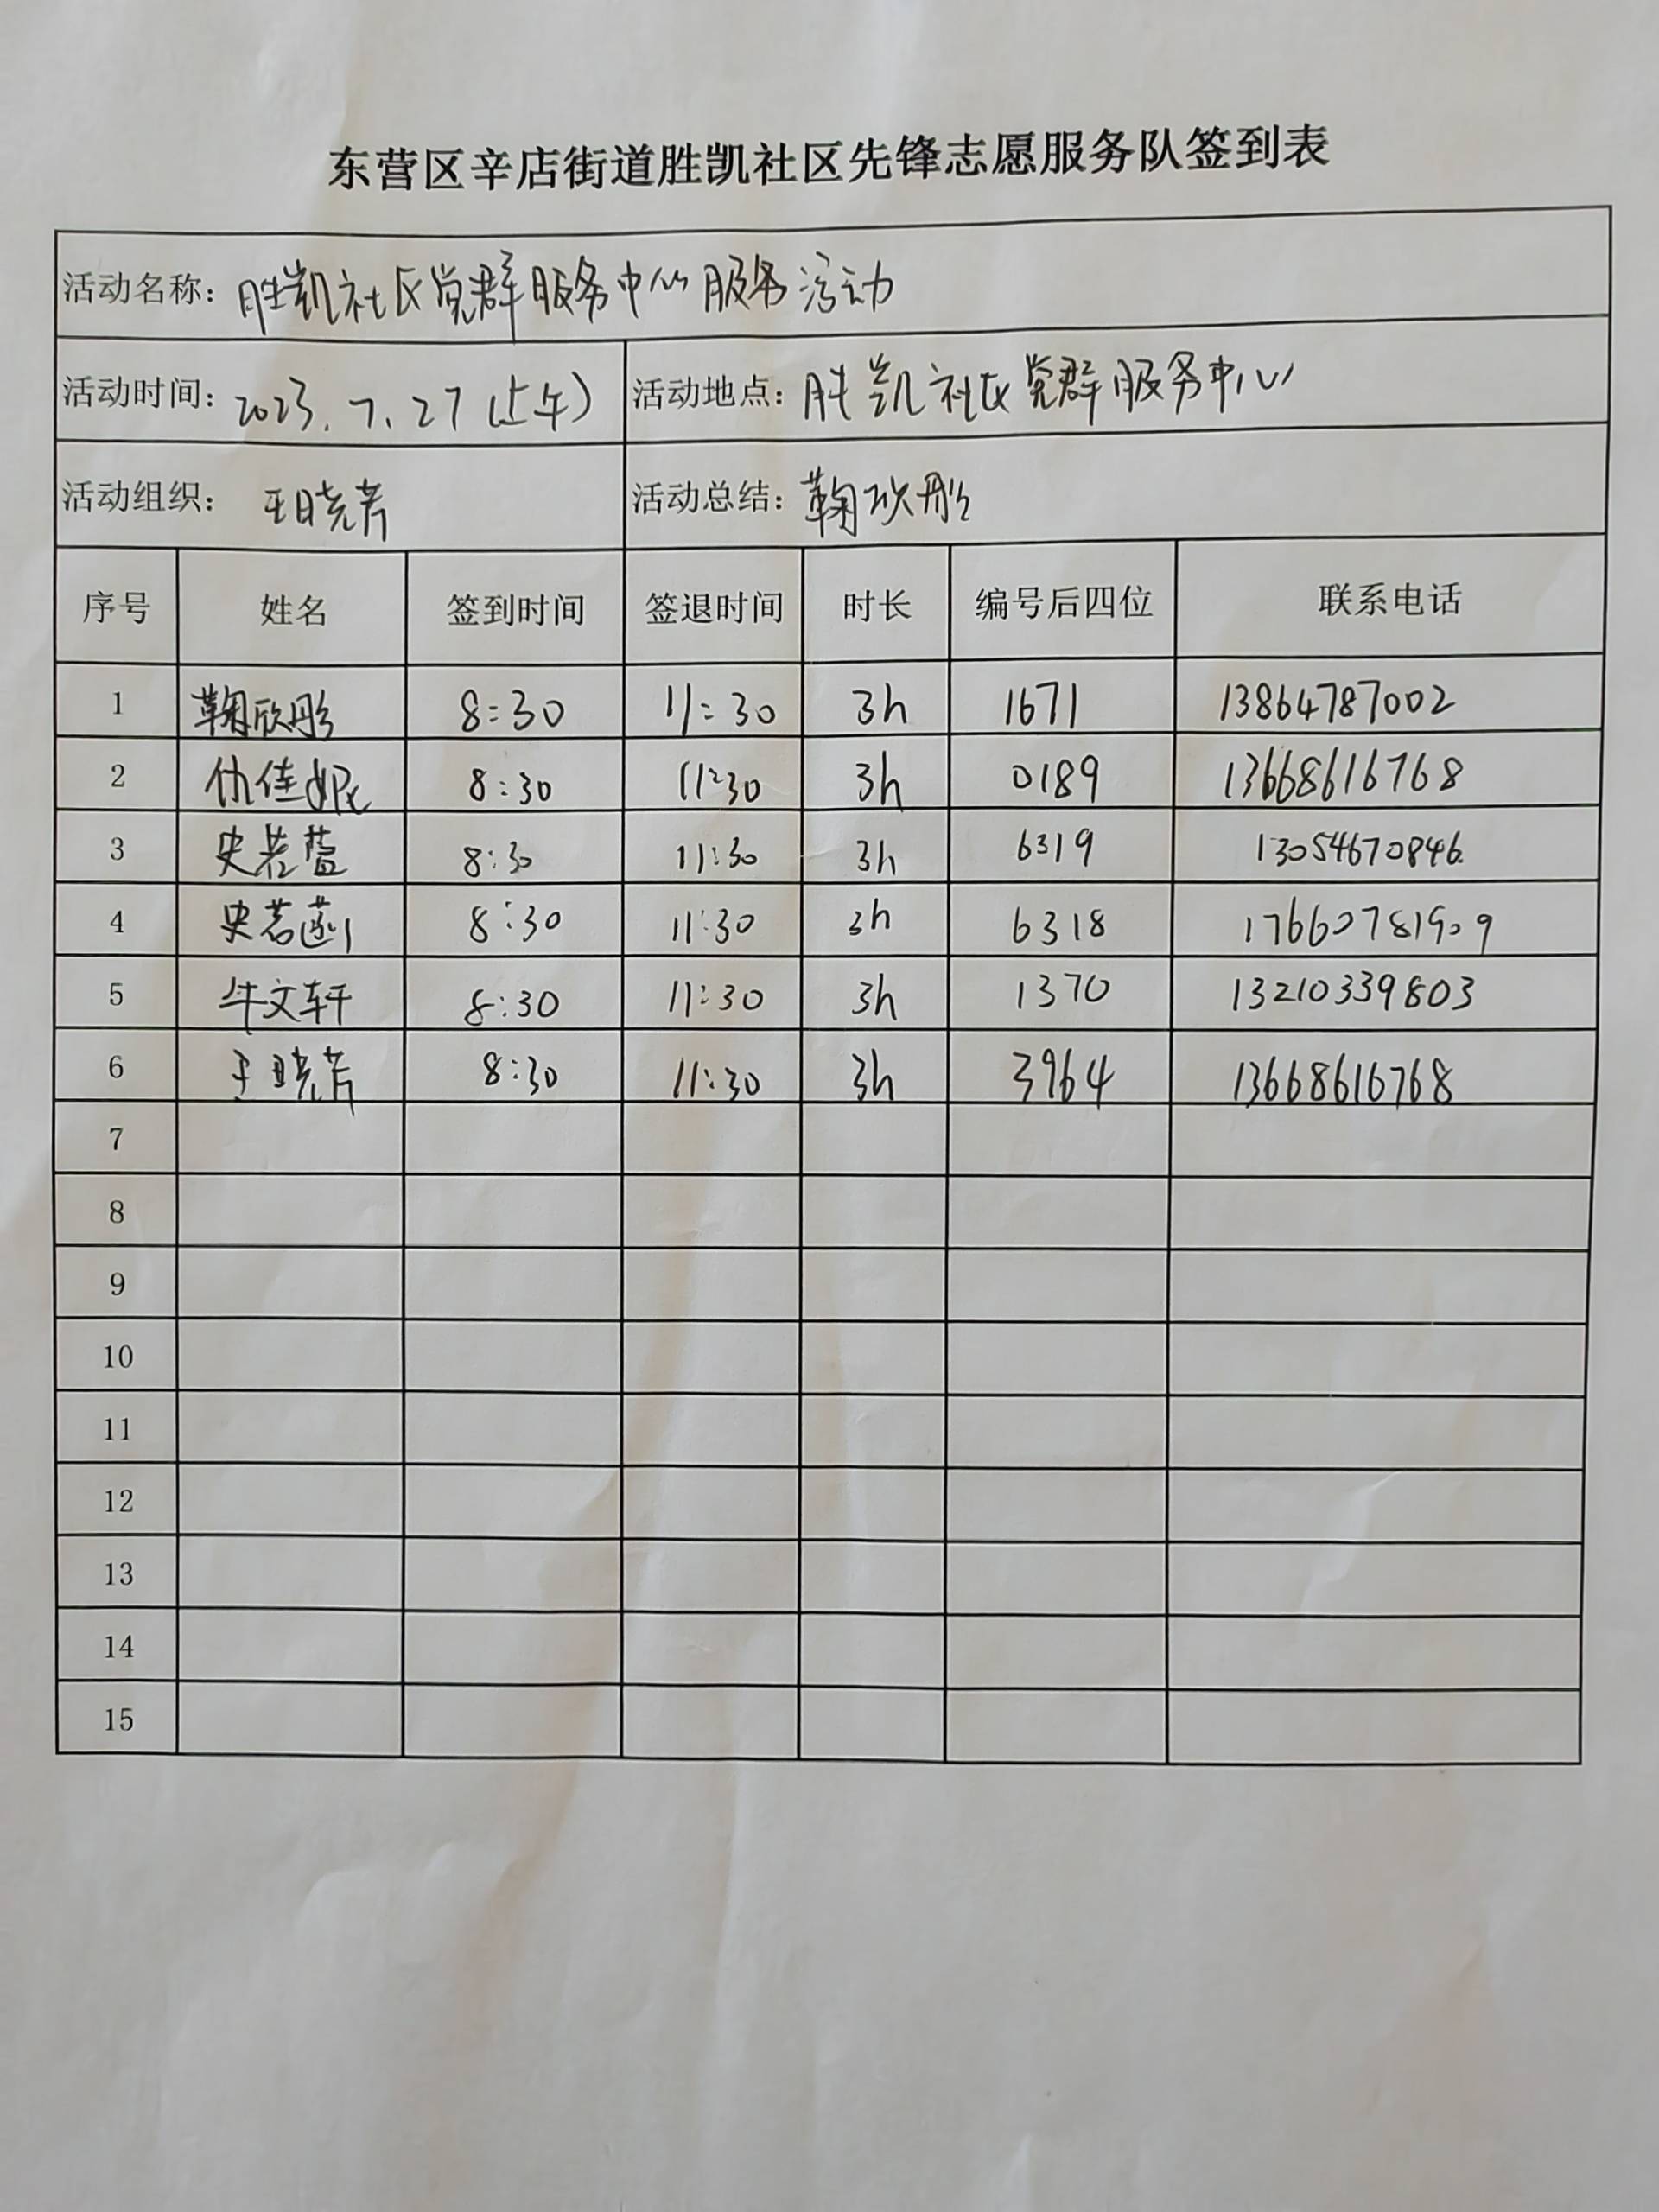 东营区辛店街道胜凯社区先锋志愿服务队签到表
活动名称：胜凯社区党群服务中心服务活动
活动时间：2023.7.27（上午） 活动地点：胜凯社区党群服务中心
活动组织：王晓芹 活动总结：鞠欣彤
序号 姓名 签到时间 签退时间 时长 编号后四位 联系电话
1 鞠欣彤 8:30 11:30 3h 1671 13864787002
2 仇佳妮 8:30 11:30 3h 0189 13668616768
3 史若蓝 8:30 11:30 3h 6319 13054670846.
4 史若涵 8:30 11:30 3h 6318 17660781909
5 牛文轩 8:30 11:30 3h 1370 13210339803
6 王晓芹 8:30 11:30 3h 3964 13668616768
7
8
9
10
11
12
13
14
15